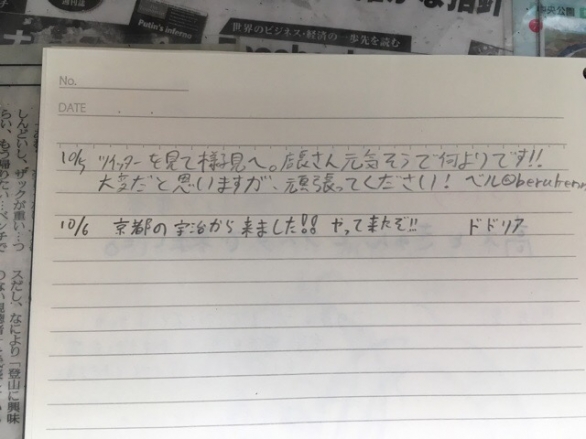 Putin's inferno
世界のビジネス・経済の一歩先を読む
な指針
央公園
No.
DATE
10/5 ツイッターを見て様子見へ。店長さん元気そうで何よりです!!
大変だと思いますが、頑張ってください! ベル@beruberu
10/6 京都の宇治から来ました!! やって来たぞ!! ドドリア
しんどいし、ザックが重い…つ
らい、もう帰りたい…ベンチで
スだし、なにより「登山に興味